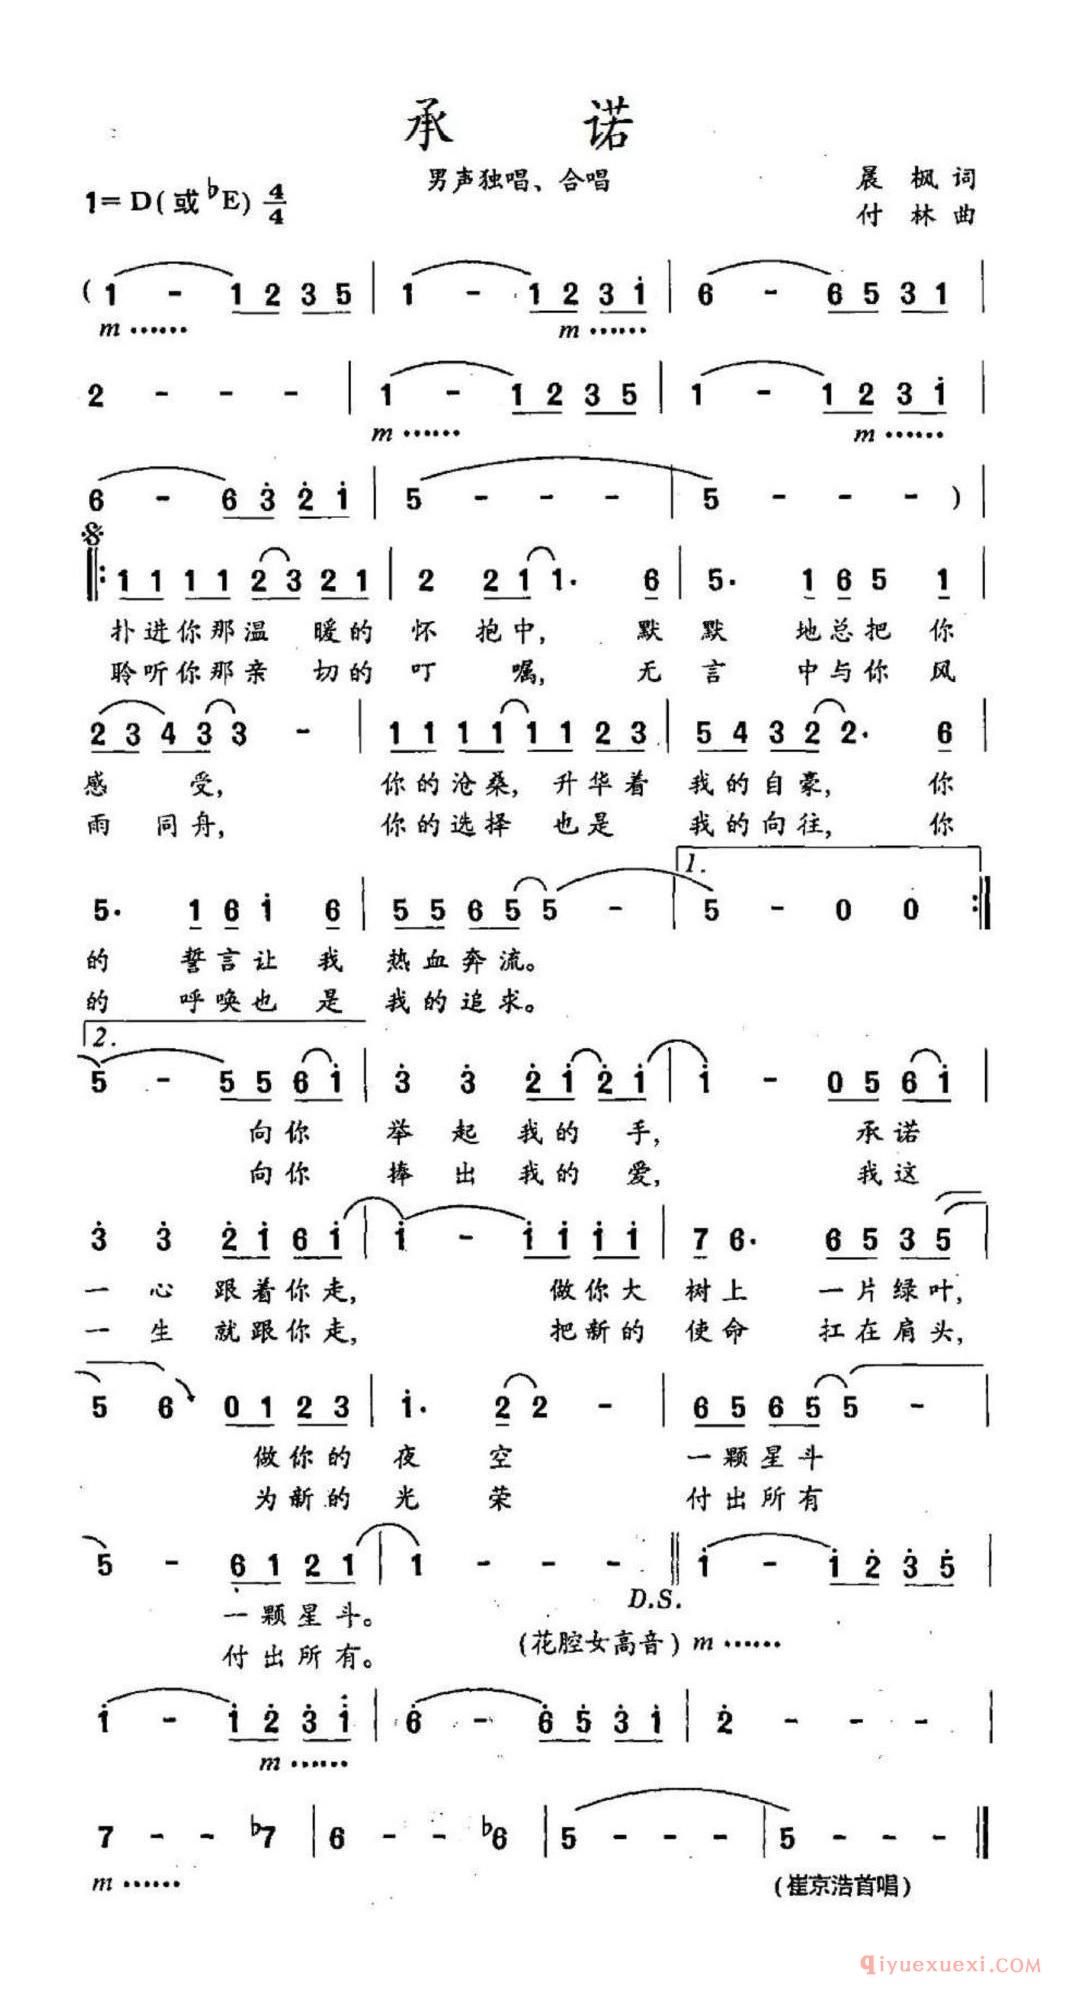 承 诺
男声独唱、合唱
1=D(或♭E) 4/4
晨 枫 词
付 林 曲
( 1 - 1 2 3 5 | 1 - 1 2 3 i | 6 - 6 5 3 1 |
m …… m ……
2 - - - | 1 - 1 2 3 5 | 1 - 1 2 3 i |
m …… m ……
6 - 6 3 2 i | 5 - - - | 5 - - - ) |
1 1 1 1 2 3 2 1 | 2 2 1 1. 6 | 5. 1 6 5 1
扑进你那温 暖的 怀 抱中, 默 默 地总把 你
聆听你那亲 切的 叮 嘱, 无 言 中与你 风
2 3 4 3 3 - | 1 1 1 1 1 1 2 3 | 5 4 3 2 2. 6 |
感 受, 你的沧桑, 升华着 我的自豪, 你
雨 同舟, 你的选择 也是 我的向往, 你
1.
5. 1 6 i 6 | 5 5 6 5 5 - | 5 - 0 0 :|
的 誓言让 我 热血奔流。
的 呼唤也 是 我的追求。
2.
5 - 5 5 6 i | 3 3 2 i 2 i | i - 0 5 6 i |
向你 举 起 我的 手, 承诺
向你 捧 出 我的 爱, 我这
3 3 2 i 6 i | i - i i i i | 7 6. 6 5 3 5 |
一 心 跟着你走, 做你大 树上 一片绿叶,
一 生 就跟你走, 把新的 使命 扛在肩头,
5 6 0 1 2 3 | i. 2 2 - | 6 5 6 5 5 - |
做你的 夜 空 一颗星斗
为新的 光 荣 付出所有
5 - 6 1 2 1 | 1 - - - || i - i 2 3 5 |
D.S.
一颗星斗。
(花腔女高音) m ……
付出所有。
i - i 2 3 i | 6 - 6 5 3 i | 2 - - - |
m ……
7 - - ♭7 | 6 - - ♭6 | 5 - - - | 5 - - - ||
m ……
(崔京浩首唱)
qiyuexuexi.COM